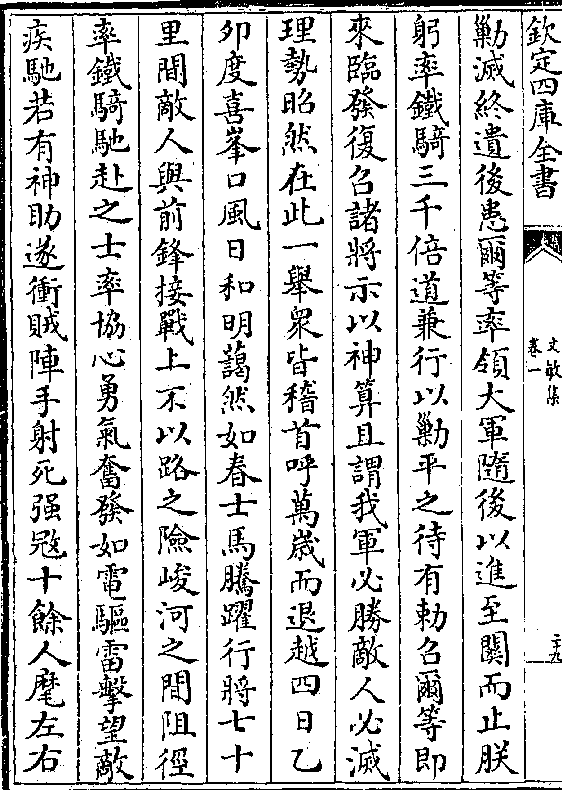 欽定四庫全書
文敏集
卷一
二十九
勦滅終遺後患爾等率領大軍隨後以進至關而止朕
躬率鐵騎三千倍道兼行以勦平之待有勅召爾等即
來臨發復召諸將示以神算且謂我軍必勝敵人必滅
理勢昭然在此一舉衆皆稽首呼萬歲而退越四日乙
夘度喜峯口風日和明藹然如春士馬騰躍行將七十
里間敵人與前鋒接戰上不以路之險峻河之間阻徑
率鐵騎馳赴之士率協心勇氣奮發如電驅雷擊望敵
疾馳若有神助遂衝賊陣手射死强㓂十餘人麾左右